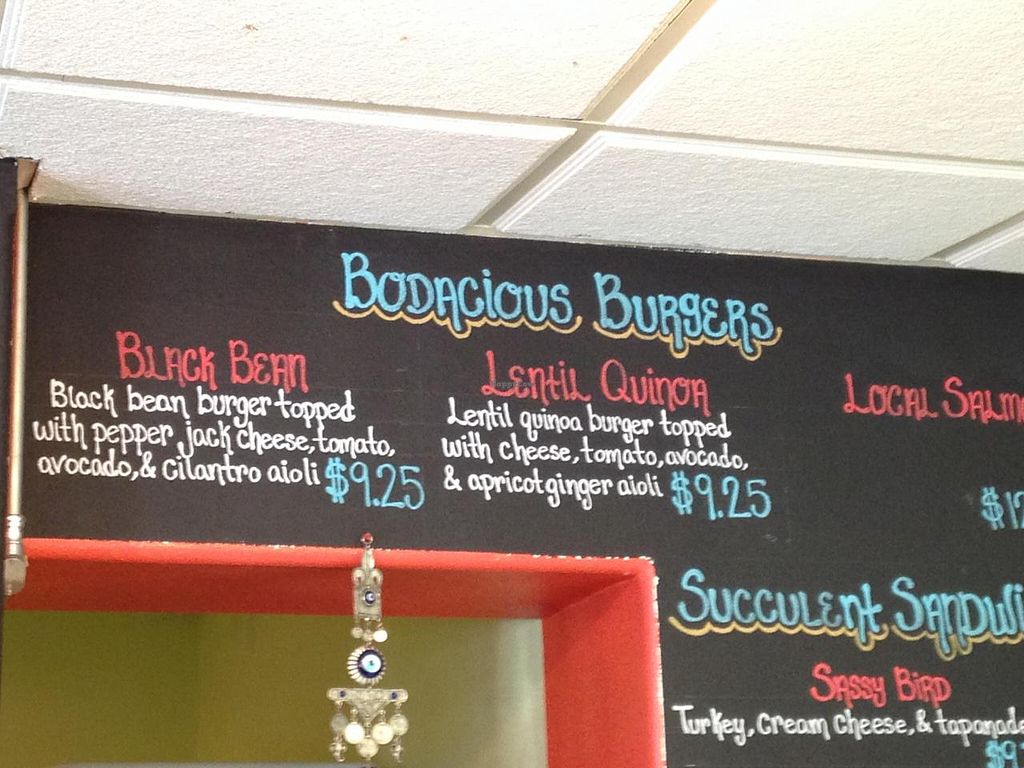 Bodacious Burgers
Black Bean
Black bean burger topped
with pepper jack cheese, tomato,
avocado, & cilantro aioli $9.25
Lentil Quinoa
Lentil quinoa burger topped
with cheese, tomato, avocado,
& apricot ginger aioli $9.25
Local
Succulent
Sassy Bird
Turkey, Cream Cheese, & tapanade